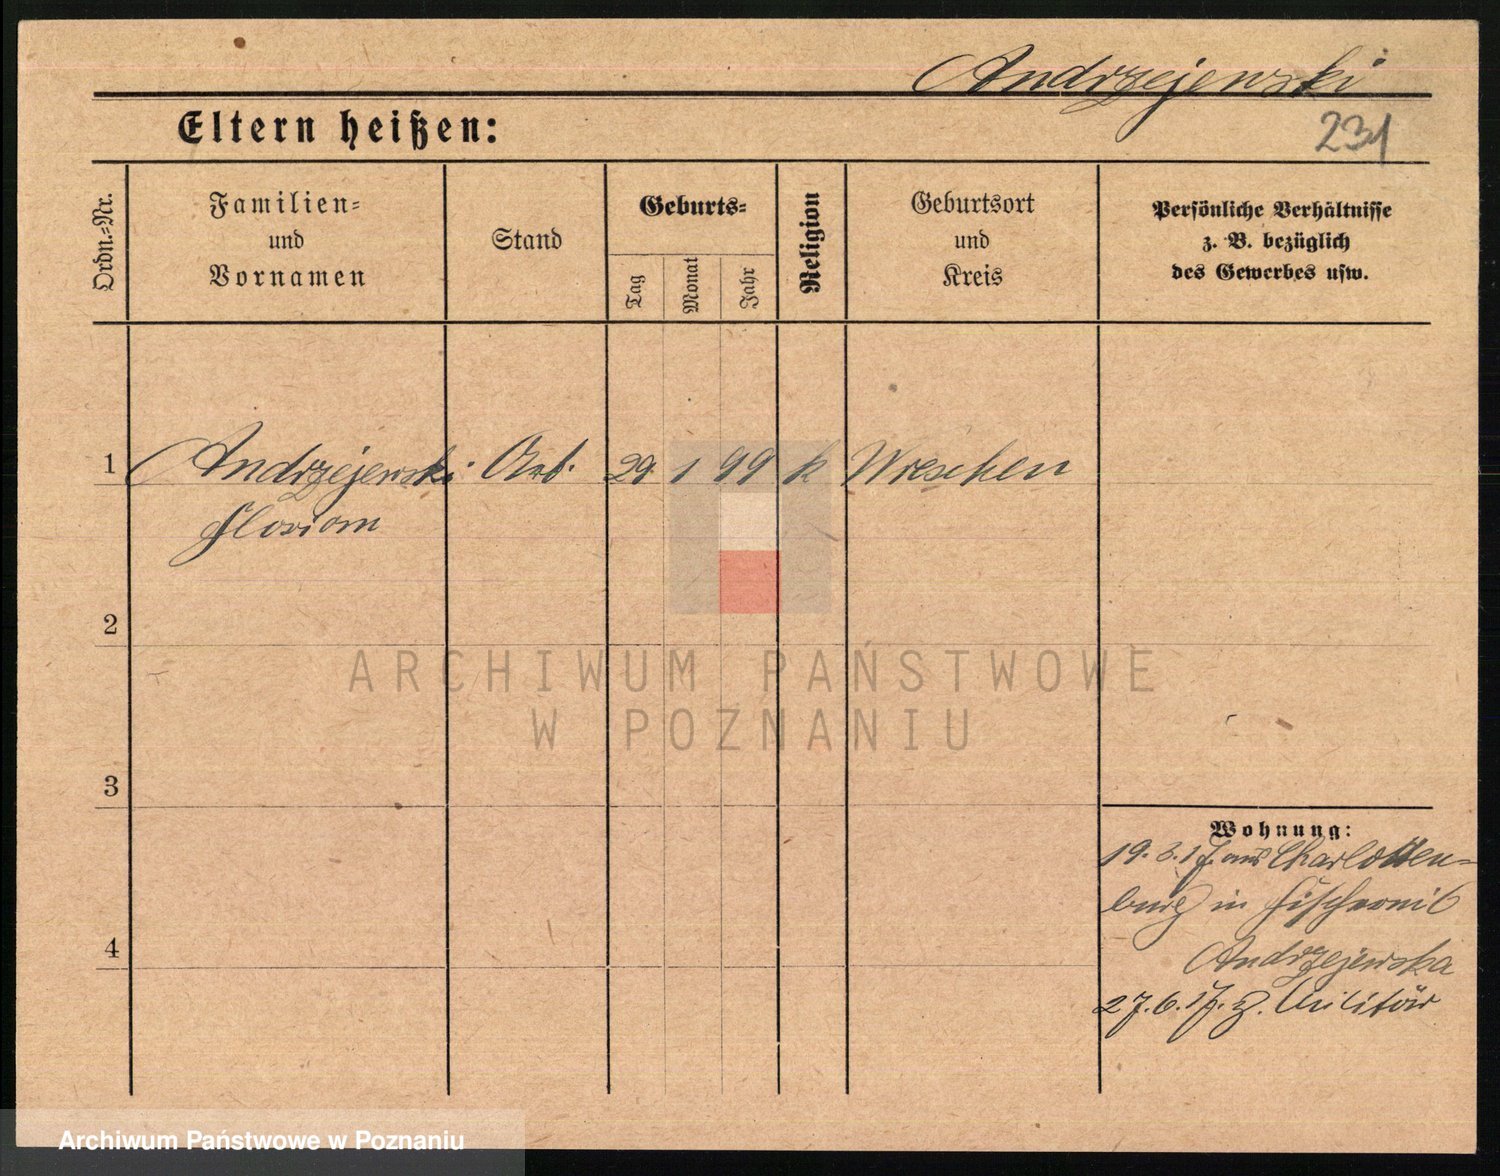 Andrzejewski
231
Eltern heißen:
Ordn.-Nr.
Familien-
und
Vornamen
Stand
Geburts-
Tag
Monat
Jahr
Religion
Geburtsort
und
Kreis
Persönliche Verhältnisse
z. B. bezüglich
des Gewerbes usw.
1 Andrzejewski Arb. 29 1 99 k Wreschen
Florian
2
3
4
Wohnung:
19.3.17. aus Charlotten-
burg in
Andrzejewska
27.6.17. z. Militär
ARCHIWUM PAŃSTWOWE
W POZNANIU
Archiwum Państwowe w Poznaniu